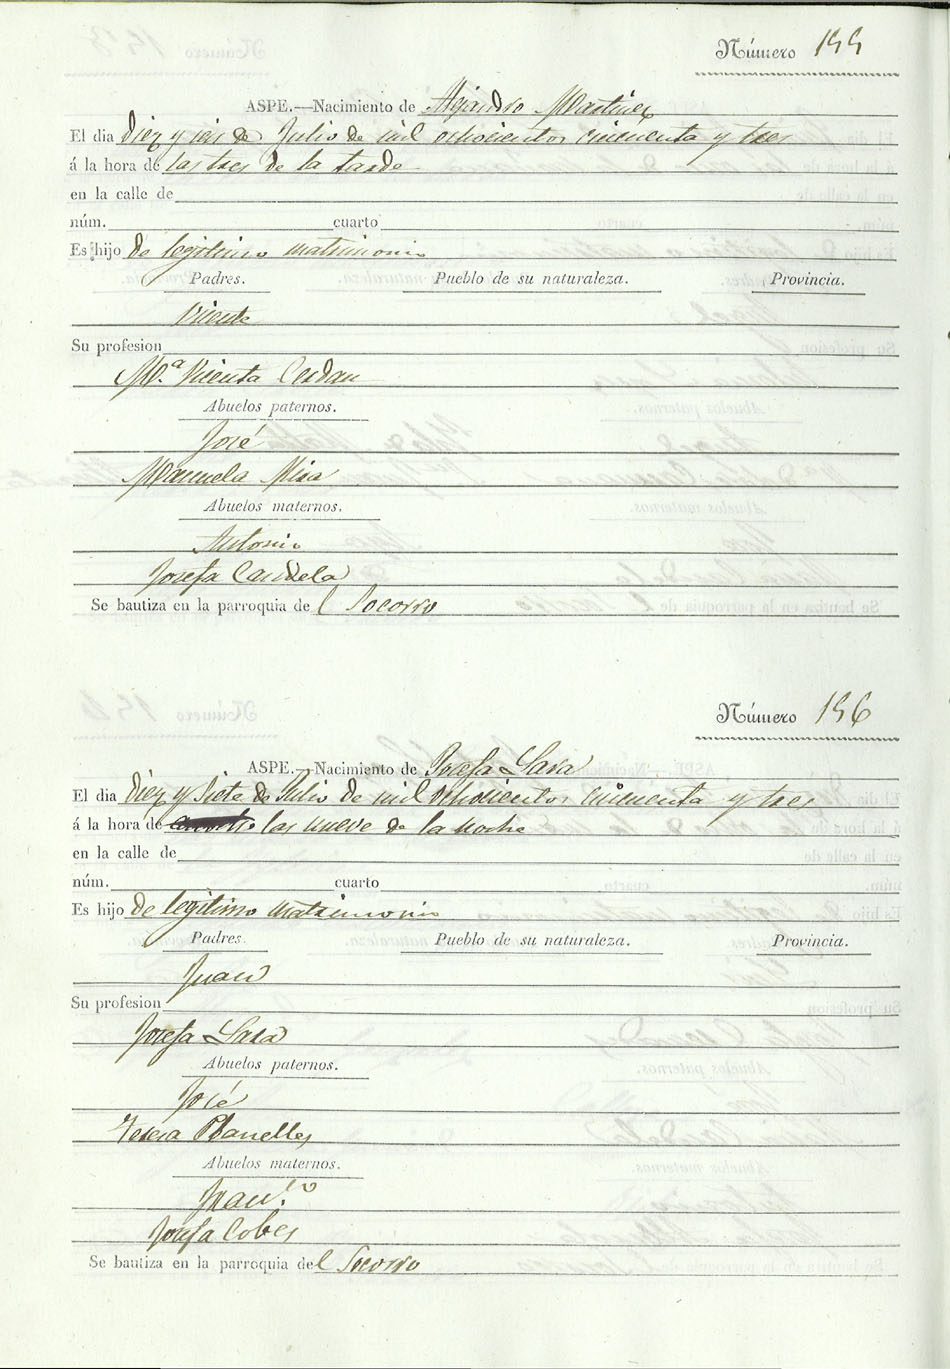 Número 155
ASPE.—Nacimiento de Alejandro Martinez
El dia diez y seis de Julio de mil ochocientos cincuenta y tres
á la hora de las tres de la tarde
en la calle de
núm. cuarto
Es hijo de legitimo matrimonio
Padres. Pueblo de su naturaleza. Provincia.
Vicente
Su profesion
Mª Vicenta Cerdan
Abuelos paternos.
José
Manuela Mira
Abuelos maternos.
Antonio
Josefa Candela
Se bautiza en la parroquia del Socorro
Número 156
ASPE.—Nacimiento de Josefa Lara
El dia diez y siete de Julio de mil ochocientos cincuenta y tres
á la hora de las nueve de la noche
en la calle de
núm. cuarto
Es hijo de legitimo matrimonio
Padres. Pueblo de su naturaleza. Provincia.
Juan
Su profesion
Josefa Lara
Abuelos paternos.
José
Teresa Planelles
Abuelos maternos.
Josefa Cobes
Se bautiza en la parroquia del Socorro